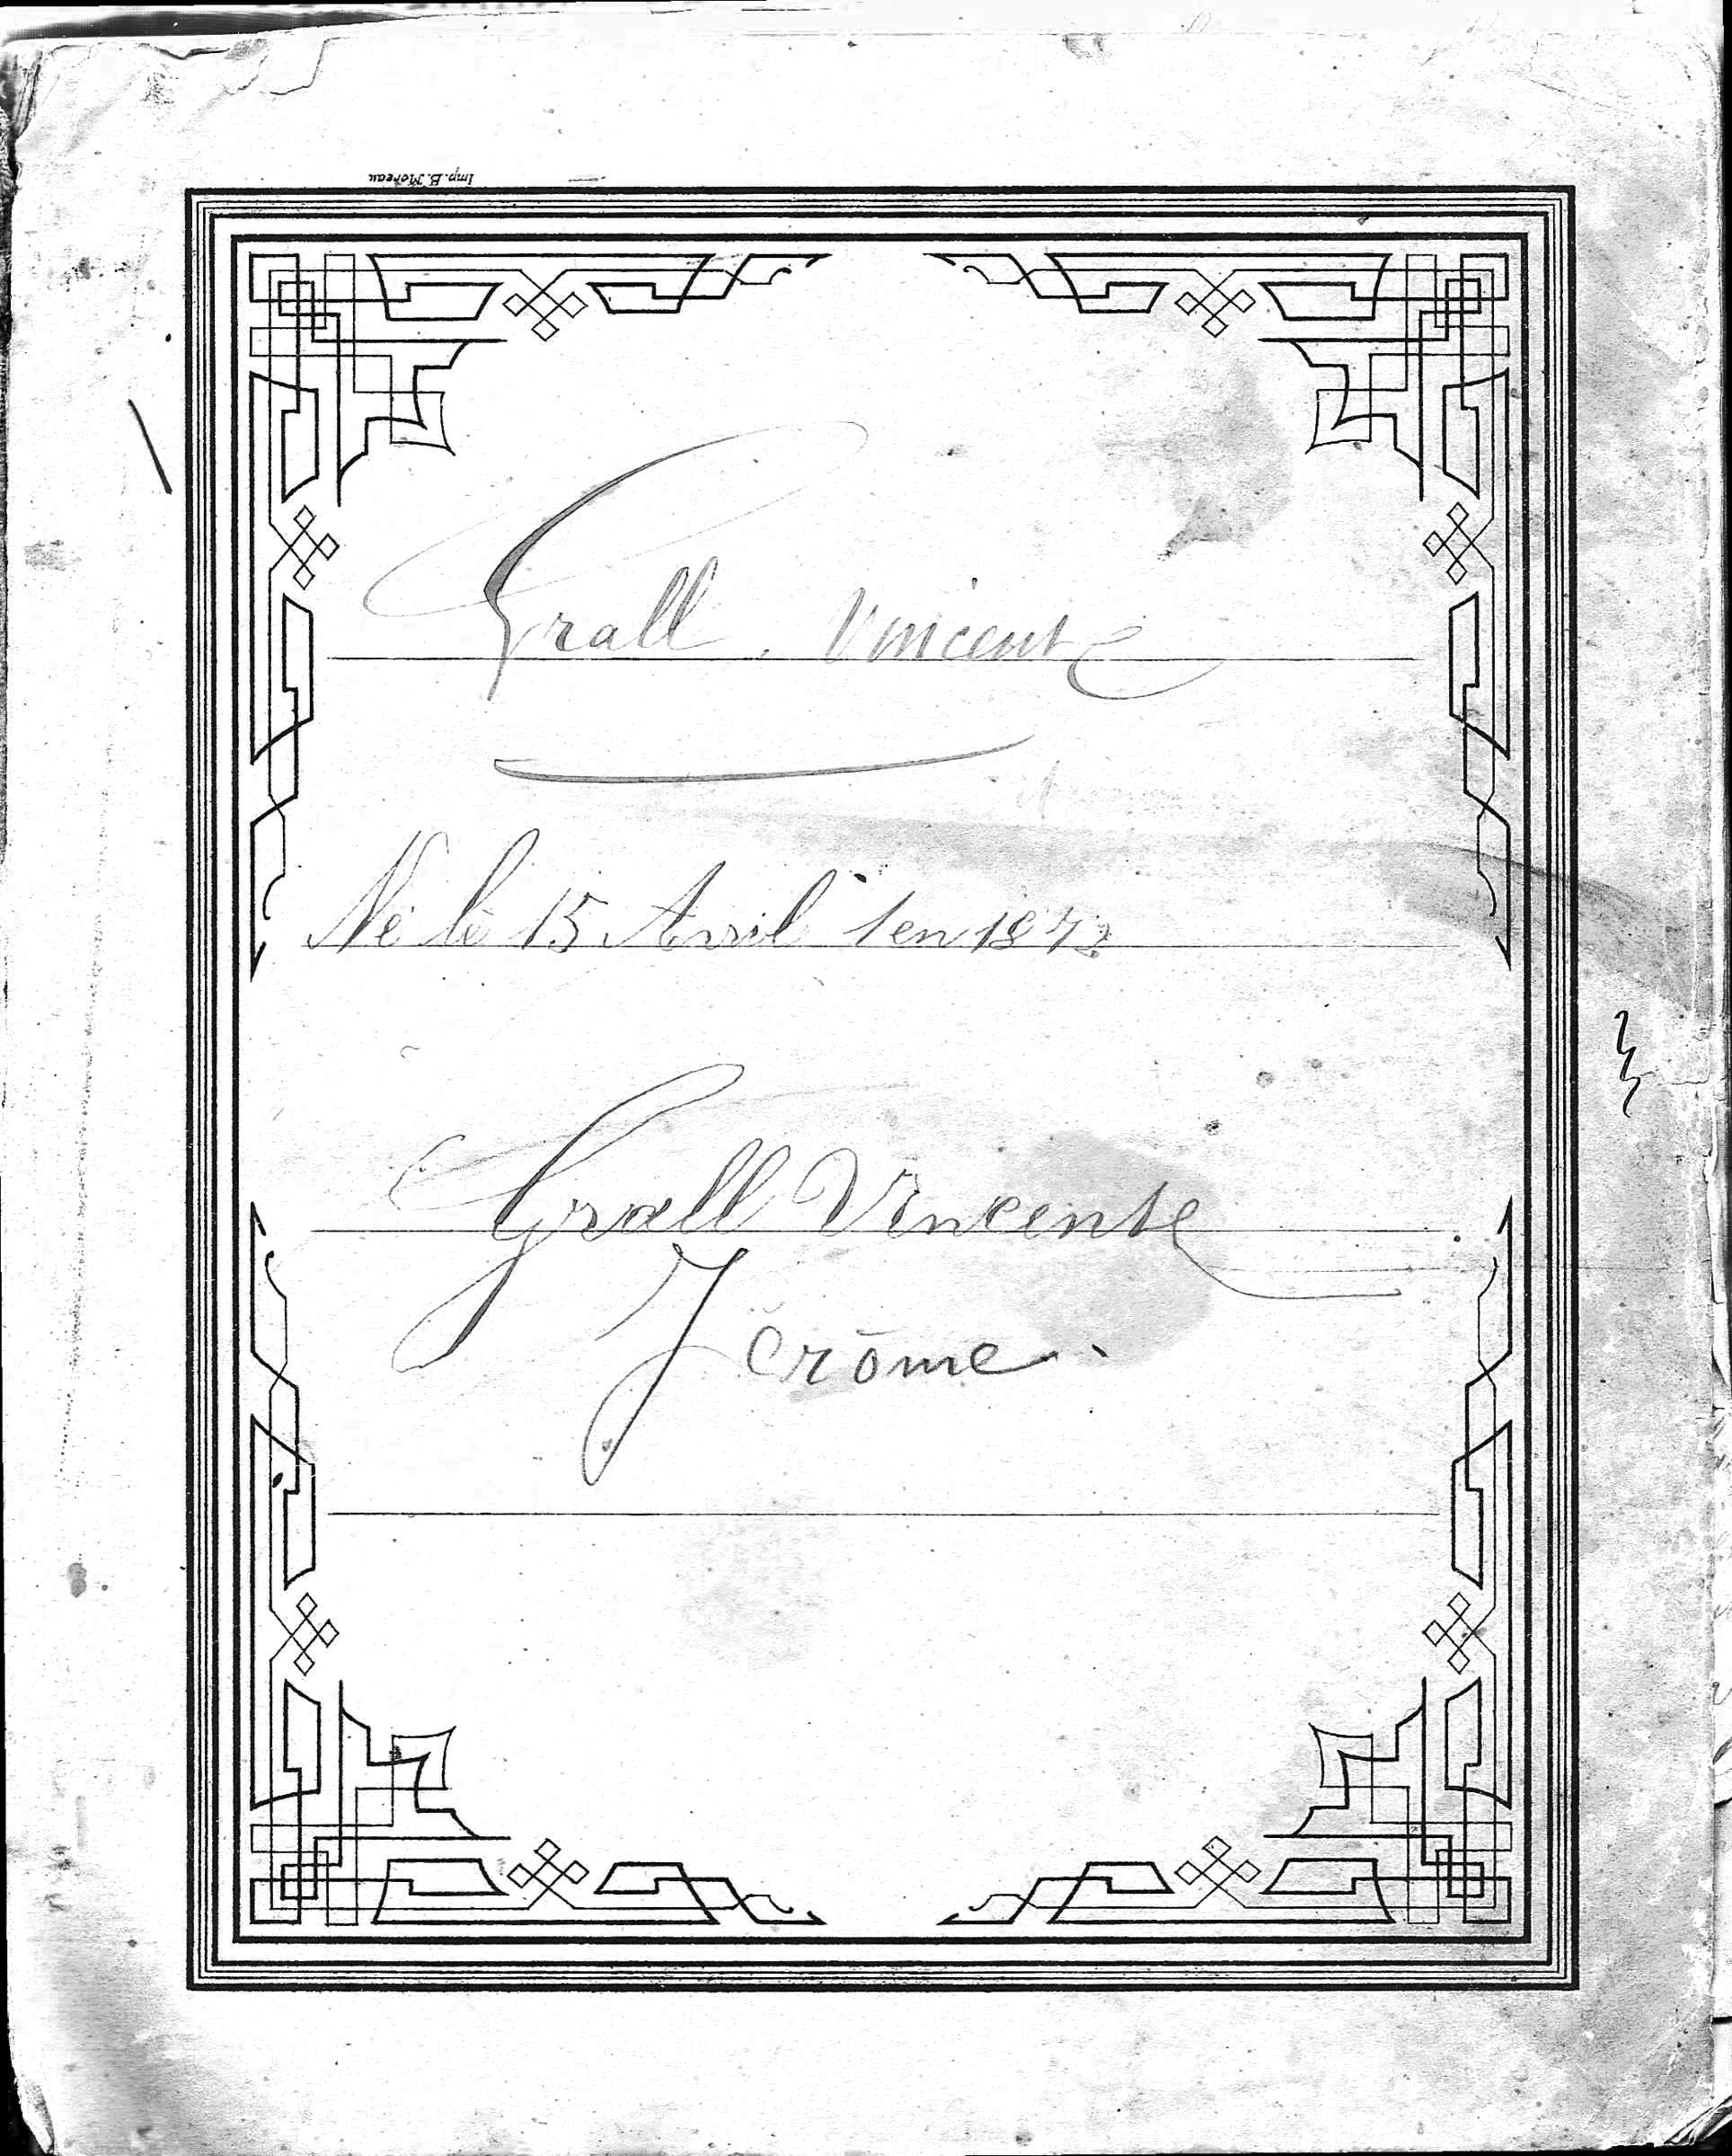 Imp. B. Moreau
Grall. Vincent
Né le 15 Avril 1en 1872
Grall Vincent
Jérôme.